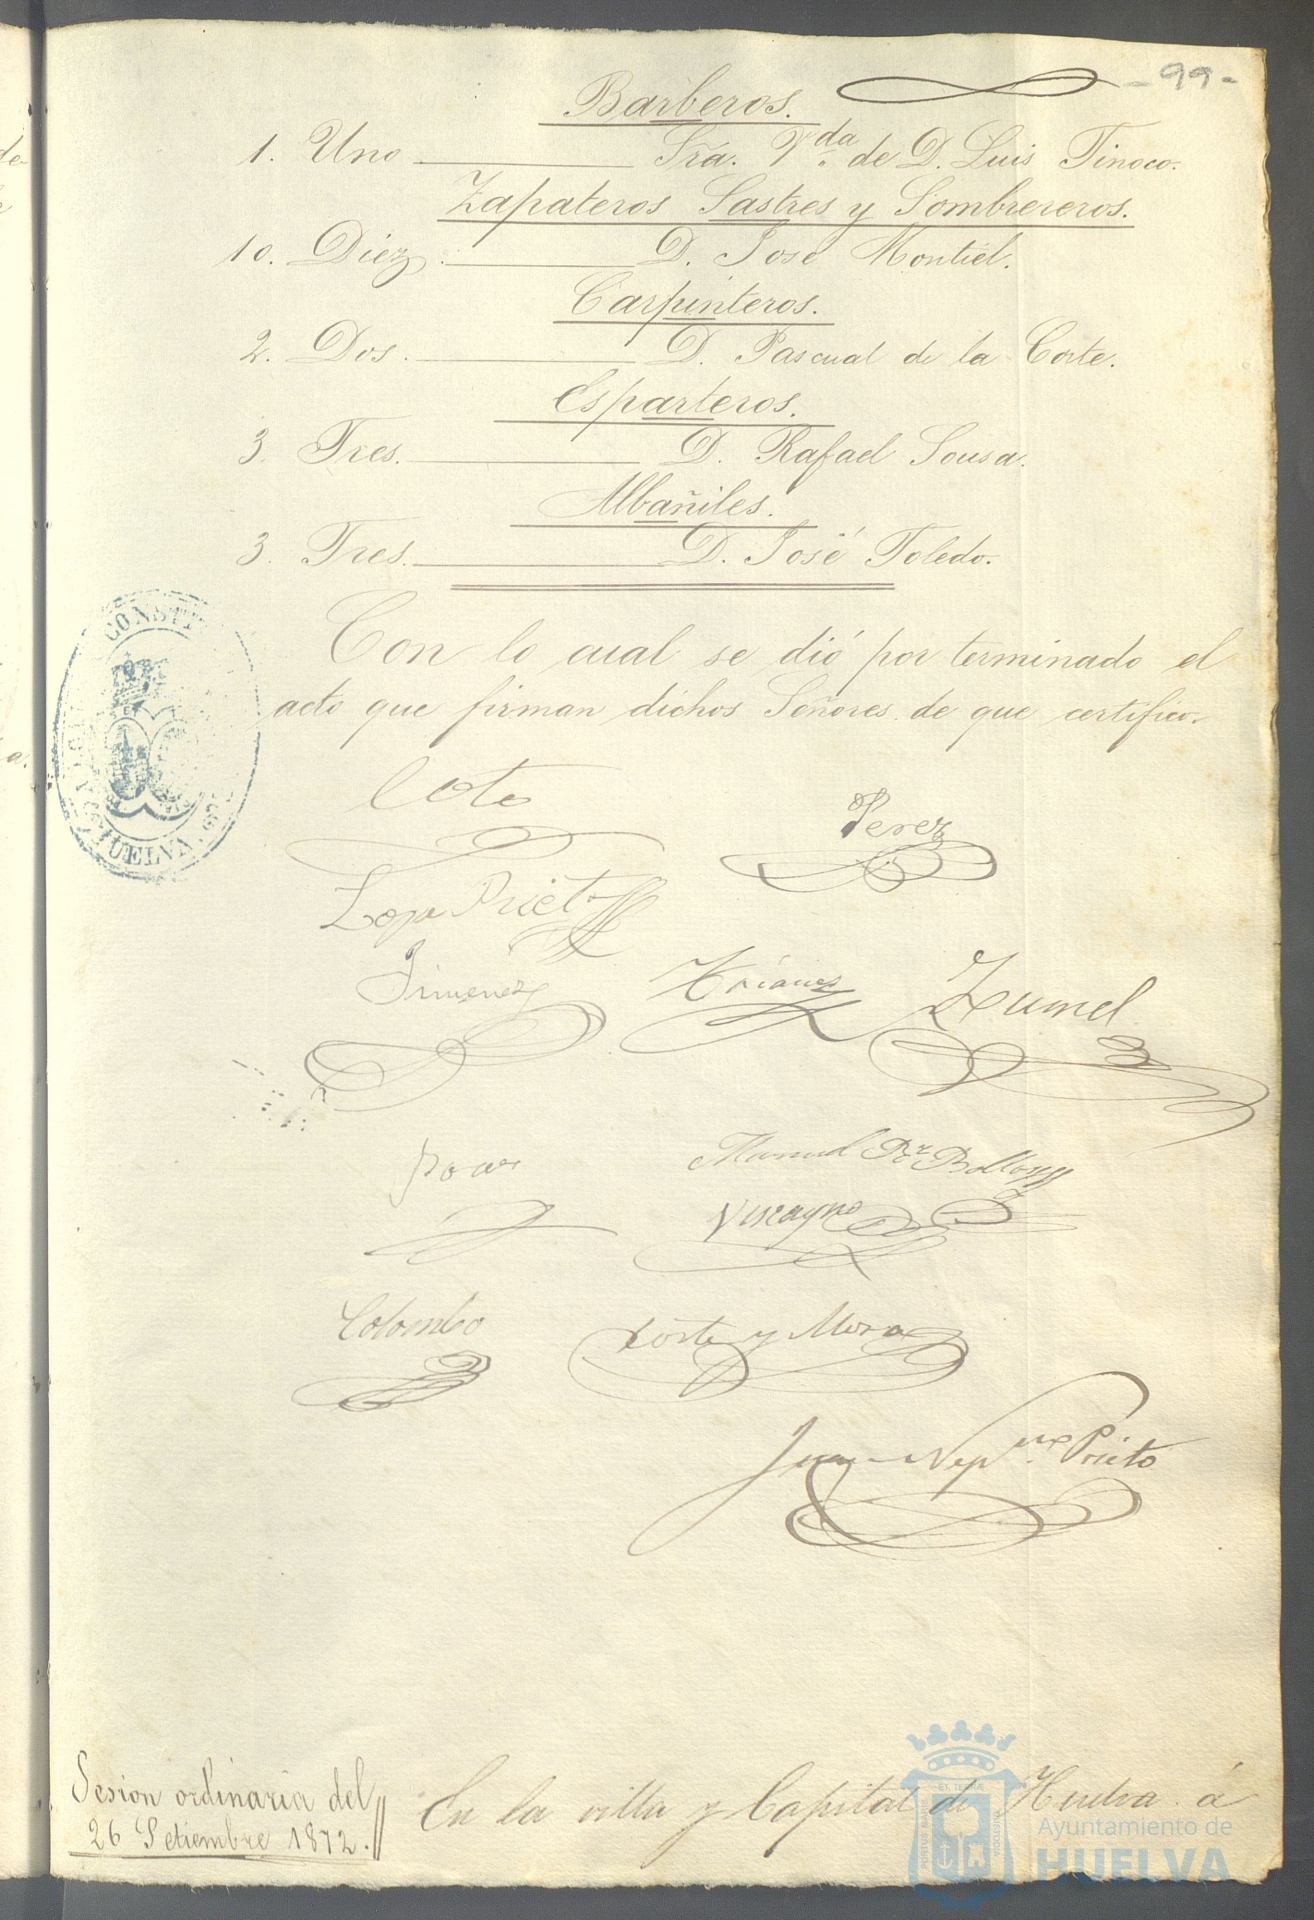 - 99 -
Barberos.
1. Uno Sra. V.da de D. Luis Tinoco.
Zapateros Sastres y Sombrereros.
10. Diez. D. José Montiel.
Carpinteros.
2. Dos. D. Pascual de la Corte.
Esparteros.
3. Tres. D. Rafael Sousa.
Albañiles.
3. Tres. D. José Toledo.
Con lo cual se dió por terminado el
acto que firman dichos Señores de que certifico.
CONSTI
HUELVA
Coto
Perez
Lopez Prieto
Jimenez Trianes Zumel
Manuel
Vizcayno
Colombo Corte y Mora
Juan Nep.no Prieto
Sesion ordinaria del
26 Setiembre 1872.
En la villa y Capital de Huelva á
Ayuntamiento de
HUELVA